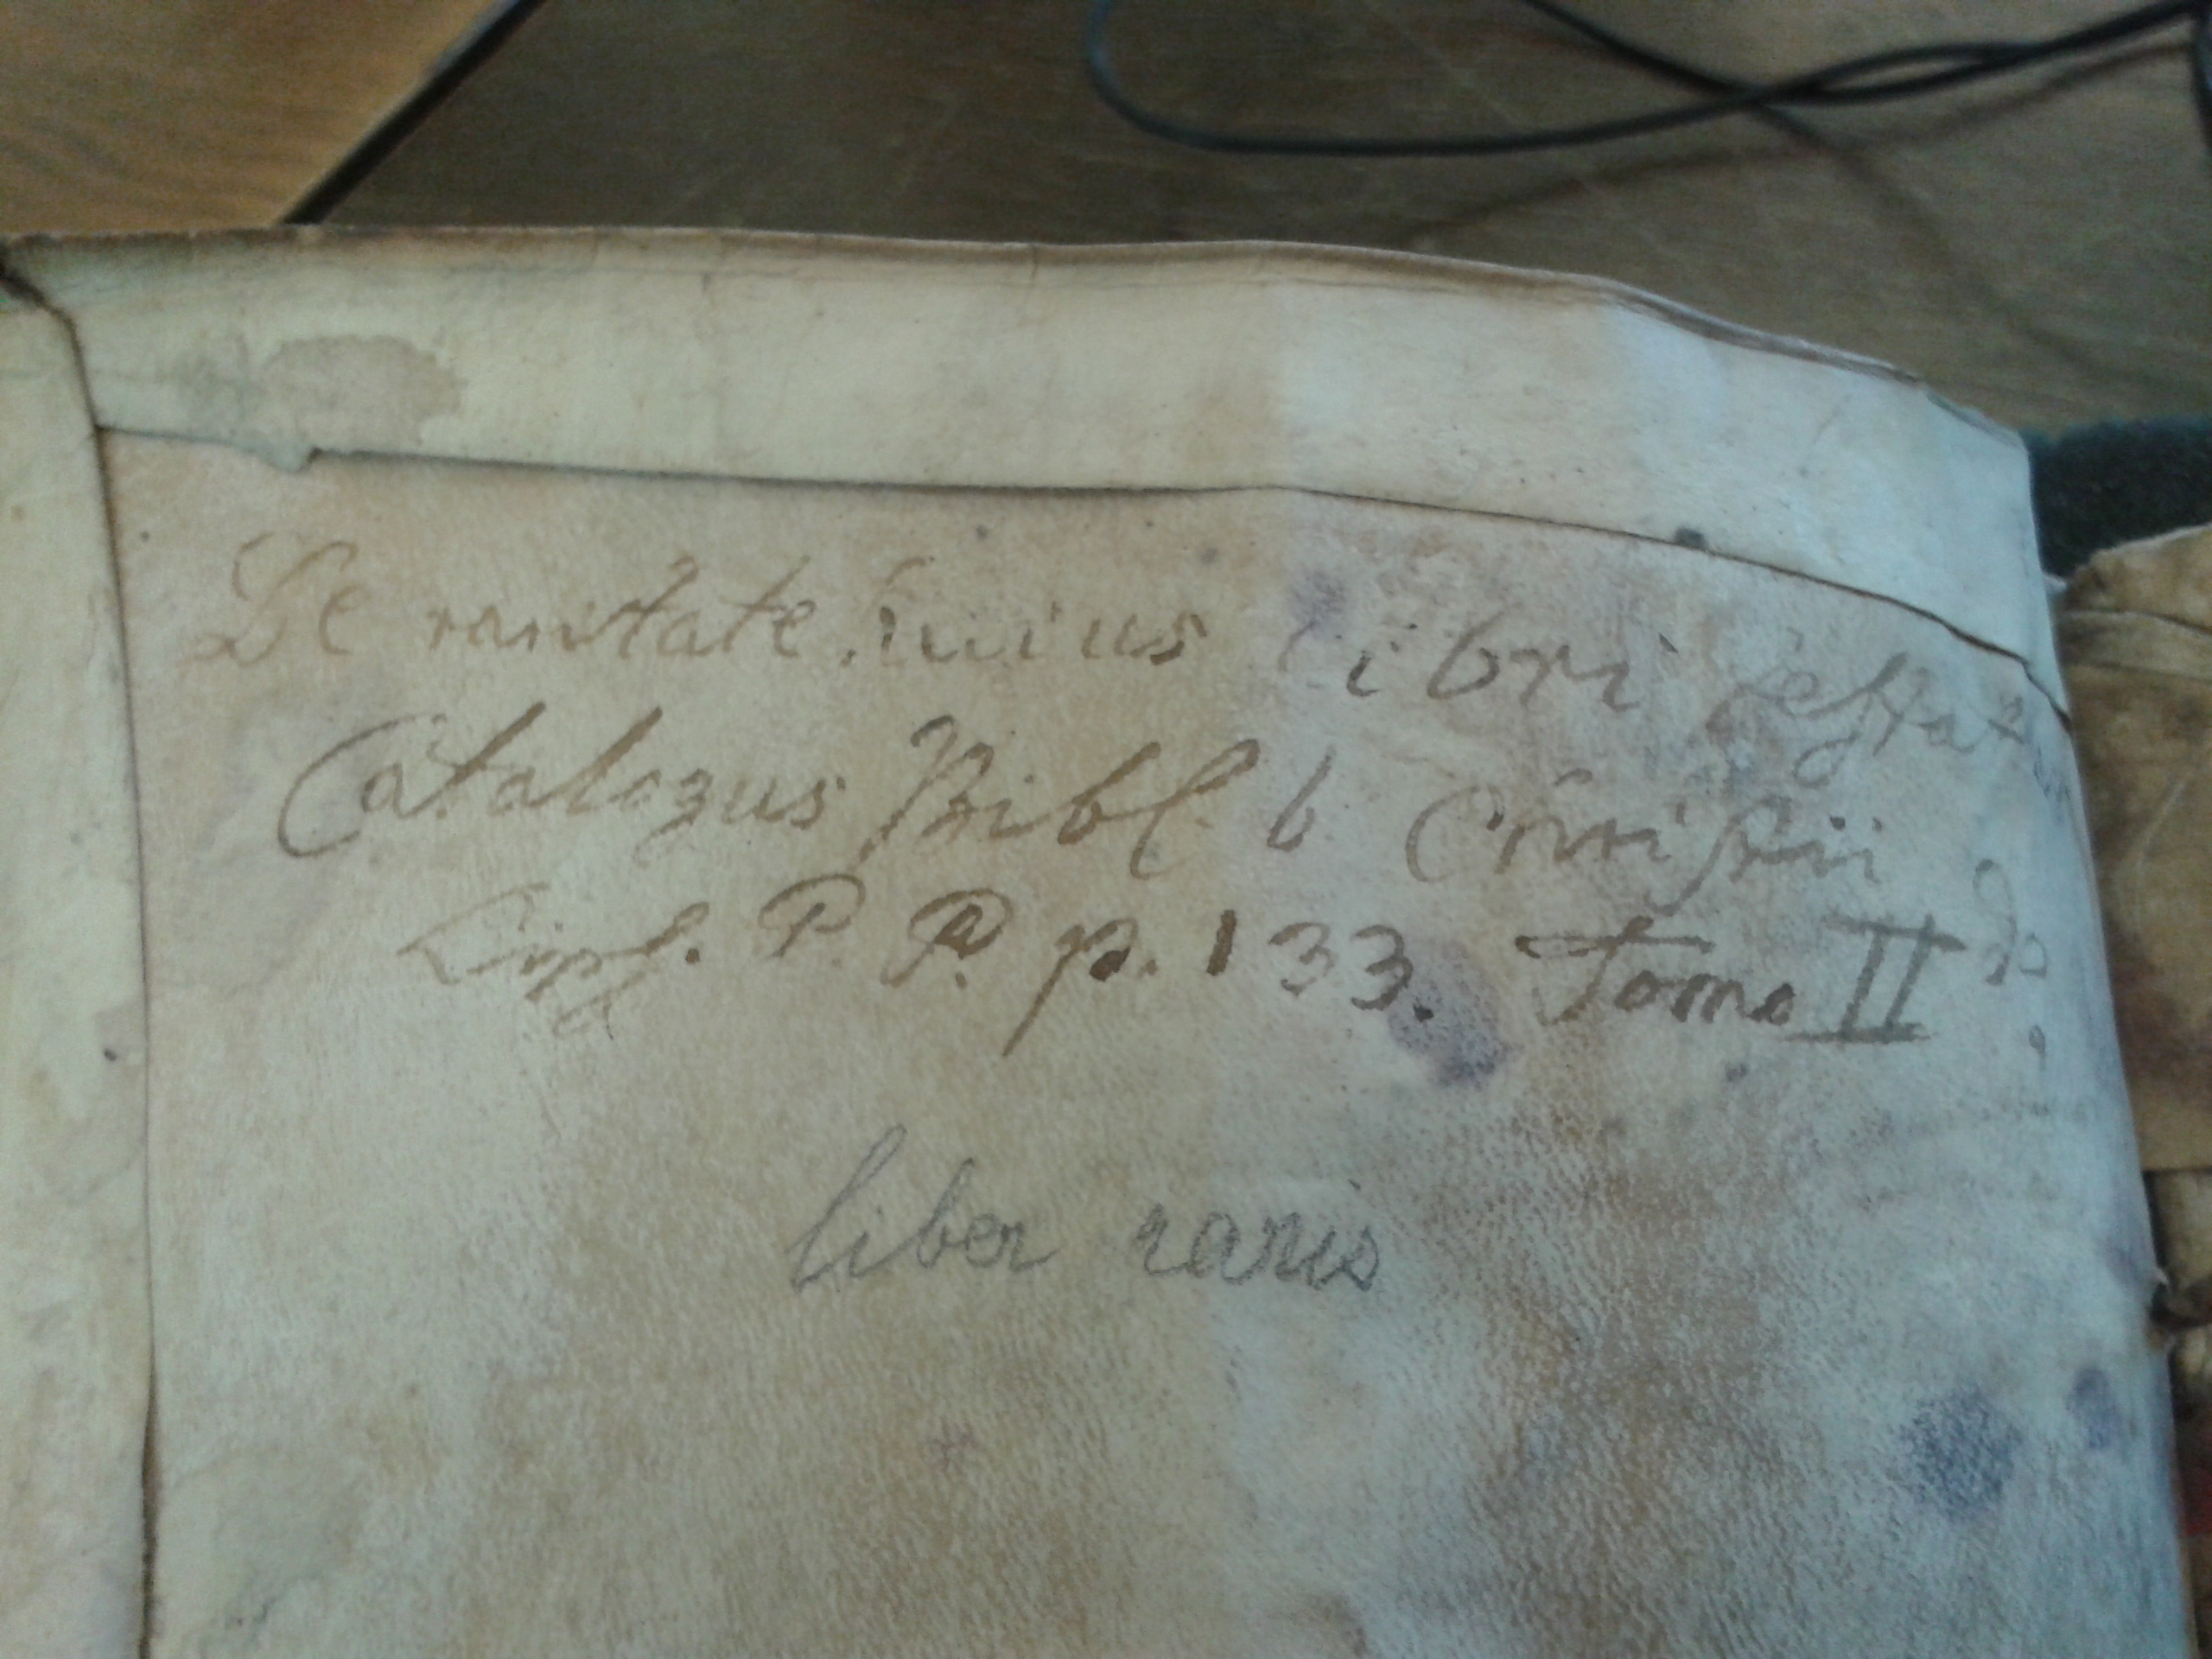 De raritate huius libri testatur
Catalogus Bibl. b Christii
Lips. P. P. p. 133. Tomo II
liber raris